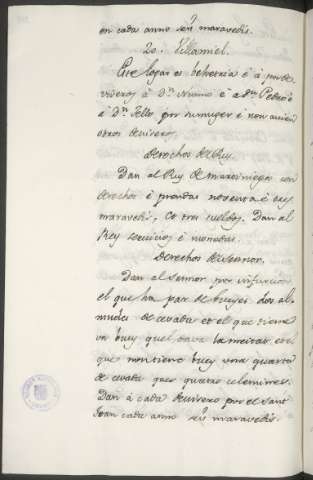 en cada anno seys maravedis.
20. Villamiel.
Este logar es behetria é á por de
viseros á Dn. Nuno é a Dn. Pedro é
á Dn. Tello, por su muger é non avien
otros deviseros.
Derechos del Rey.
Dan al Rey de martiniega con
derechos é prendas noventa é seys
maravedis, et tres sueldos. Dan al
Rey servicios é monedas.
Derechos del Sennor.
Dan al Sennor por infurcion
el que ha par de bueyes dos al-
mudes de cevada et el que tiene
un buey quel dava la meitad, et el
que non tiene buey una quarta
de cevada que es quatro celemines.
Dan á cada devisero por el sant
Joan cada anno seys maravedis.